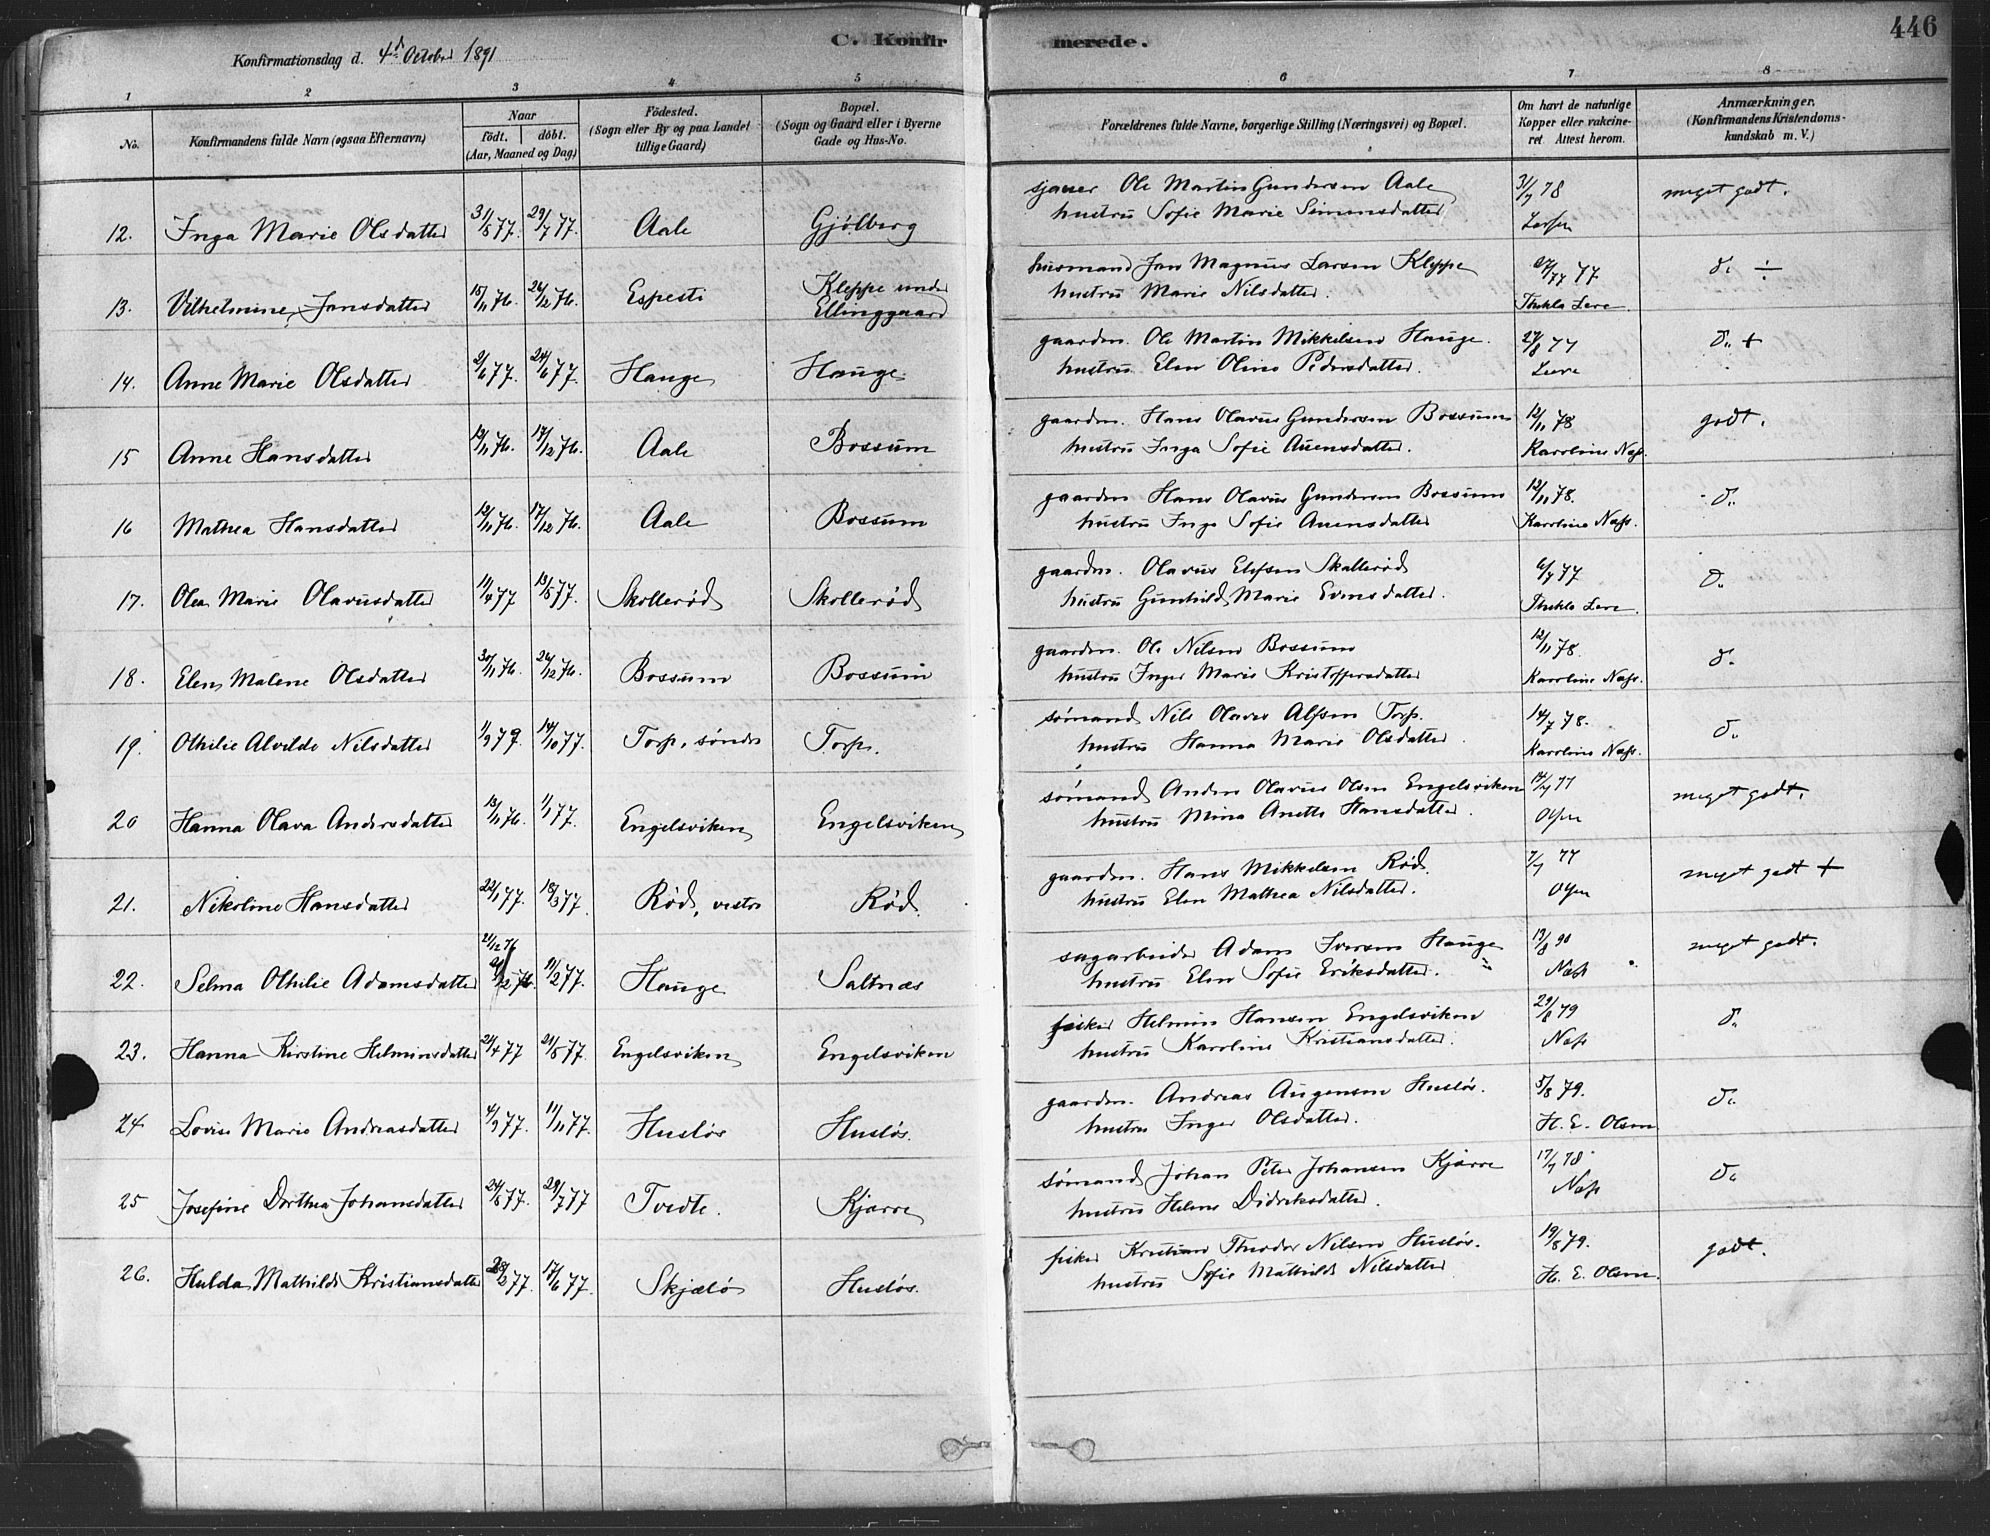 446
C. Konfirmerede.
Konfirmationsdag d. 4d October 1891
1 2 3 4 5 6 7 8
No.
Konfirmandens fulde Navn (ogsaa Efternavn)
Naar
født. døbt.
(Aar, Maaned og Dag)
Fødested.
(Sogn eller By og paa Landet
tillige Gaard)
Bopæl.
(Sogn og Gaard eller i Byerne
Gade og Hus-No.
Forældrenes fulde Navne, borgerlige Stilling (Næringsvei) og Bopæl.
Om havt de naturlige
Kopper eller vakcine-
ret Attest herom.
Anmærkninger.
(Konfirmandens Kristendoms-
kundskab m. V.)
12. Inga Marie Olsdatter 31/5 77. 29/7 77. Aale Gjølberg sjauer Ole Martin Gundersen Aale 31/7 78 meget godt.
hustru Sofie Marie Simensdatter
13. Vilhelmine Jansdatter 15/11 76. 26/12 76. Espesti Kleppe under husmand Jan Magnus Larsen Kleppe 77 d. ÷
Ellinggaard hustru Marie Nilsdatter. Thekla Lere
14. Anne Marie Olsdatter 2/6 77. 24/6 77. Hauge Hauge gaardm. Ole Martin Mikkelsen Hauge. 27/8 77 d. +
hustru Elen Oline Pedersdatter. Lere
15 Anne Hansdatter 12/11 76. 17/12 76. Aale Bossum gaardm. Hans Olavus Gundersen Bossum 12/11 78 godt.
hustru Inga Sofie Auensdatter. Karoline Næss.
16 Mathea Hansdatter 12/11 76. 17/12 76. Aale Bossum gaardm Hans Olavus Gundersen Bossum 12/11 78. d.
hustru Inga Sofie Auensdatter Karoline Næss.
17. Olea Marie Olavusdatter 11/4 77 13/5 77. Skollerød Skollerød gaardm. Olavus Elefsen Skallerød 6/7 77 d.
hustru Gunhild Marie Evensdatter. Thekla Lere.
18. Elen Malene Olsdatter 30/11 76. 26/12 76. Bossum Bossum gaardm. Ole Nilsen Bossum 12/11 78. d.
hustru Inger Marie Kristoffersdatter Karoline Næss.
19. Othilie Alvilde Nilsdatter 1/9 77 14/10 77. Torp, søndr Torp. sømand Nils Olaves Alfsen Torp. 14/7 78. d.
hustru Hanna Marie Olsdatter Karoline Næss.
20 Hanna Olava Andersdatter 13/11 76. 1/1 77. Engelsviken Engelsviken sømand Anders Olavus Olsen Engelsviken 77 meget godt.
hustru Mina Anette Hansdatter. Olsen
21. Nikoline Hansdatter 22/1 77. 18/3 77. Rød, vestre Rød. gaardm. Hans Mikkelsen Rød. 7/7 77 meget godt +
hustru Elen Mathea Nilsdatter. Olsen
21/12 76
22. Selma Othilie Adamsdatter 11/2 77. Hauge Saltnæs sagarbeider Adam Iversen Hauge 13/8 90 meget godt.
hustru Elen Sofie Eriksdatter. Næss
23. Hanna Kirstine Helminsdatter 21/4 77 21/5 77. Engelsviken Engelsviken fisker Helmin Hansen Engelsviken 29/8 79 d.
hustru Karoline Kristiansdatter. Næss
24 Lovise Marie Andreasdatter 4/9 77. 11/11 77. Husløs Husløs. gaardm. Andreas Augensen Husløs. 5/8 79. d.
hustru Inger Olsdatter. H. E. Olsen
25 Josefine Dorthea Johansdatter 24/5 77. 29/7 77 Tvedte. Kjærre sømand Johan Peter Johansen Kjærre 17/7 78 d.
hustru Helene Didriksdatter. Næss
26. Hulda Mathilde Kristiansdatter 28/2 77. 17/6 77. Skjælø Husløs. fisker Kristian Theodor Nilsen Husløs. 19/8 79. godt.
hustru Sofie Mathilde Nilsdatter H. E. Olsen.